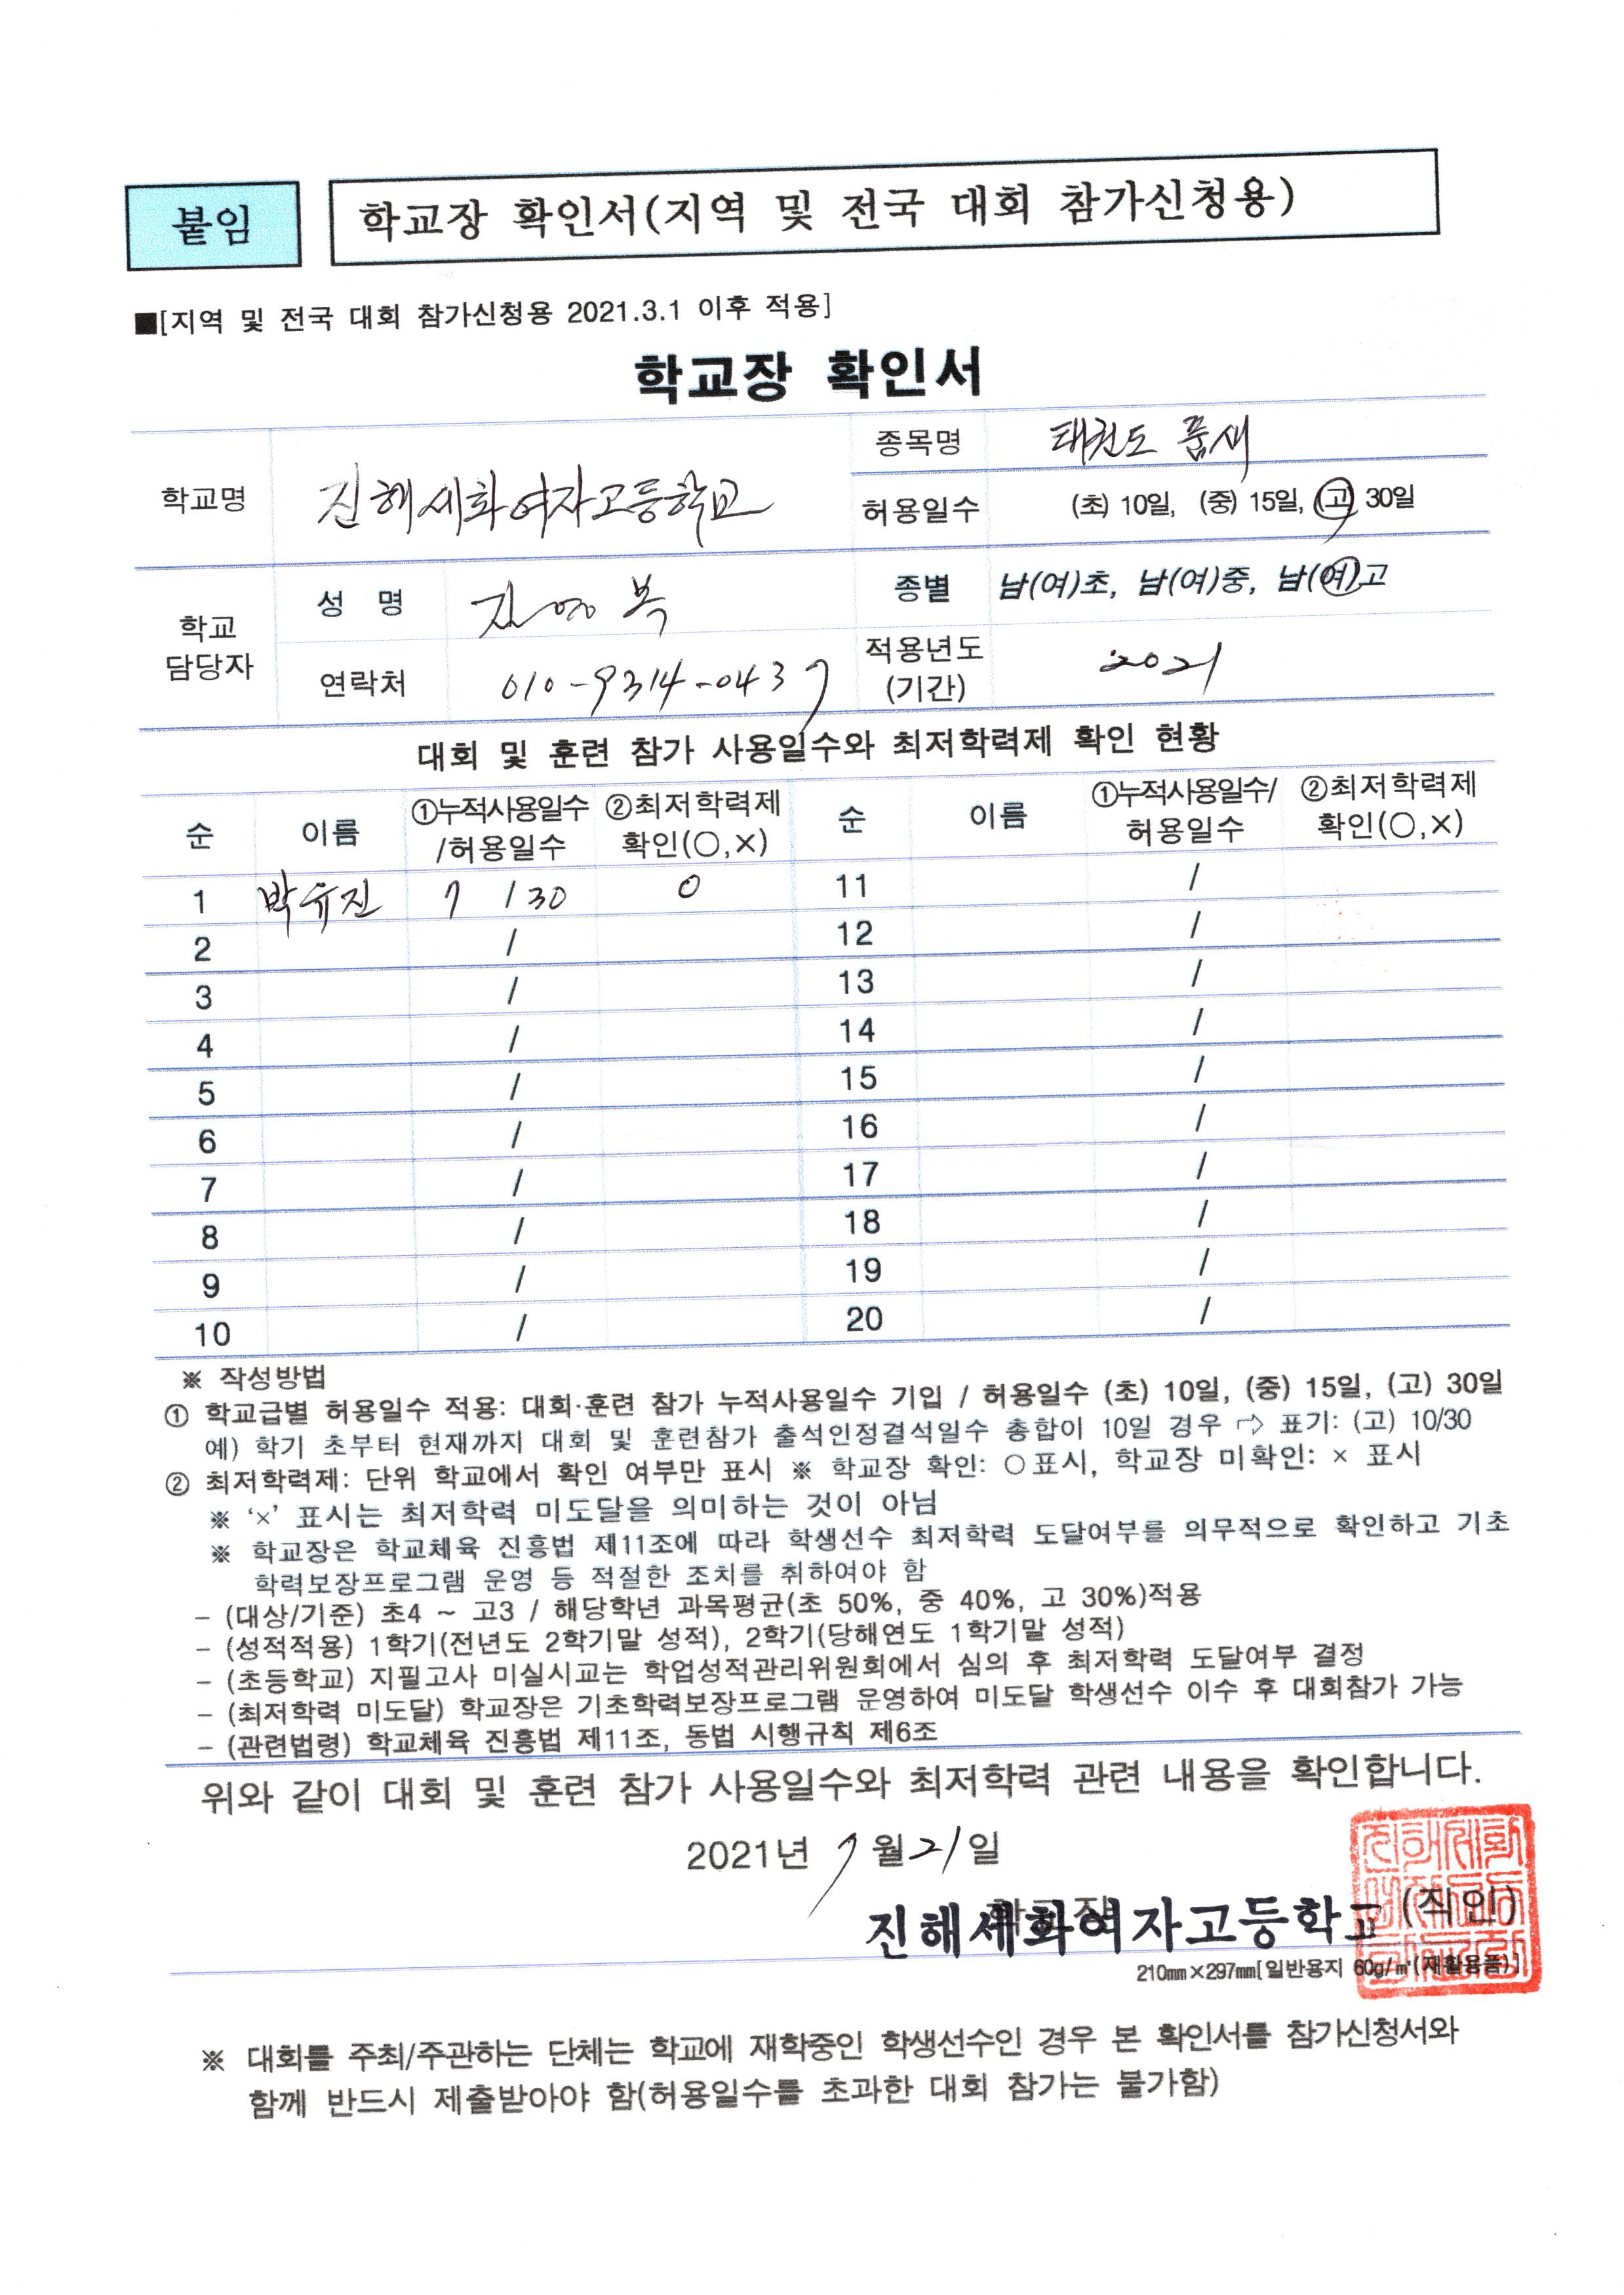 붙임
학교장 확인서(지역 및 전국 대회 참가신청용)
■[지역 및 전국 대회 참가신청용 2021.3.1 이후 적용]
학교장 확인서
학교명 진해세화여자고등학교 종목명 태권도 품새
허용일수 (초) 10일, (중) 15일, (고) 30일
학교 담당자 성 명 김영복 종별 남(여)초, 남(여)중, 남(여)고
연락처 010-9314-0437 적용년도 (기간) 2021
대회 및 훈련 참가 사용일수와 최저학력제 확인 현황
순 이름 ①누적사용일수 /허용일수 ②최저학력제 확인(○,×) 순 이름 ①누적사용일수/ 허용일수 ②최저학력제 확인(○,×)
1 박유진 7 / 30 0 11 /
2 / 12 /
3 / 13 /
4 / 14 /
5 / 15 /
6 / 16 /
7 / 17 /
8 / 18 /
9 / 19 /
10 / 20 /
※ 작성방법
① 학교급별 허용일수 적용: 대회·훈련 참가 누적사용일수 기입 / 허용일수 (초) 10일, (중) 15일, (고) 30일
예) 학기 초부터 현재까지 대회 및 훈련참가 출석인정결석일수 총합이 10일 경우 ⇨ 표기: (고) 10/30
② 최저학력제: 단위 학교에서 확인 여부만 표시 ※ 학교장 확인: ○표시, 학교장 미확인: × 표시
※ ‘×’ 표시는 최저학력 미도달을 의미하는 것이 아님
※ 학교장은 학교체육 진흥법 제11조에 따라 학생선수 최저학력 도달여부를 의무적으로 확인하고 기초
학력보장프로그램 운영 등 적절한 조치를 취하여야 함
– (대상/기준) 초4 ~ 고3 / 해당학년 과목평균(초 50%, 중 40%, 고 30%)적용
– (성적적용) 1학기(전년도 2학기말 성적), 2학기(당해연도 1학기말 성적)
– (초등학교) 지필고사 미실시교는 학업성적관리위원회에서 심의 후 최저학력 도달여부 결정
– (최저학력 미도달) 학교장은 기초학력보장프로그램 운영하여 미도달 학생선수 이수 후 대회참가 가능
– (관련법령) 학교체육 진흥법 제11조, 동법 시행규칙 제6조
위와 같이 대회 및 훈련 참가 사용일수와 최저학력 관련 내용을 확인합니다.
2021년 7월 21일
학교장
진해세화여자고등학교 (직인)
210㎜×297㎜[일반용지 60g/㎡(재활용품)]
※ 대회를 주최/주관하는 단체는 학교에 재학중인 학생선수인 경우 본 확인서를 참가신청서와
함께 반드시 제출받아야 함(허용일수를 초과한 대회 참가는 불가함)